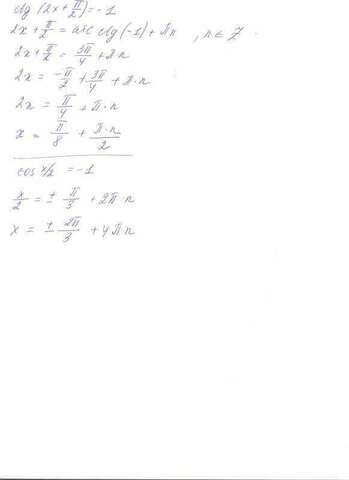 ctg (2x + π/2) = -1
2x + π/2 = arc ctg (-1) + πn , n ∈ Z.
2x + π/2 = 3π/4 + πn
2x = -π/2 + 3π/4 + π·n
2x = π/4 + π·n
x = π/8 + π·n/2
cos x/2 = -1
x/2 = ± π/3 + 2π·n
x = ± 2π/3 + 4πn